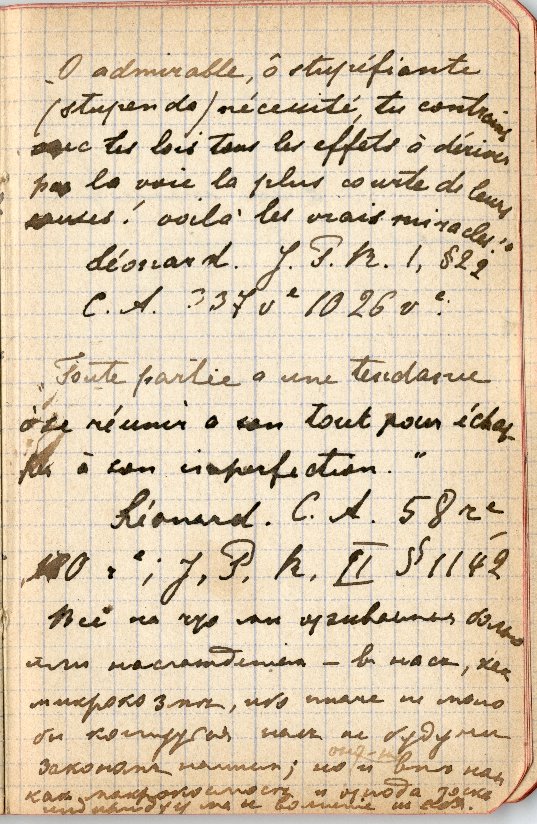 "O admirable, ô stupéfiante
(stupenda) nécessité, tu contrains
avec tes lois tous les effets à dériver
par la voie la plus courte de leurs
causes! voilà les vrais miracles."
Léonard. J. P. R. I, §22
C. A. 337 vº 1026 vº.
Toute partie a une tendance
à se réunir a son tout pour échap-
per à son imperfection."
Léonard. C. A. 58 rº
rº; J. P. R. II § 1142
Всё на что мы
или наслаждением – в насъ, как
микрокозмъ, ибо иначе не
бы насъ не будучи
закономъ нашимъ; но и внѣ нас
как и отсюда тоска